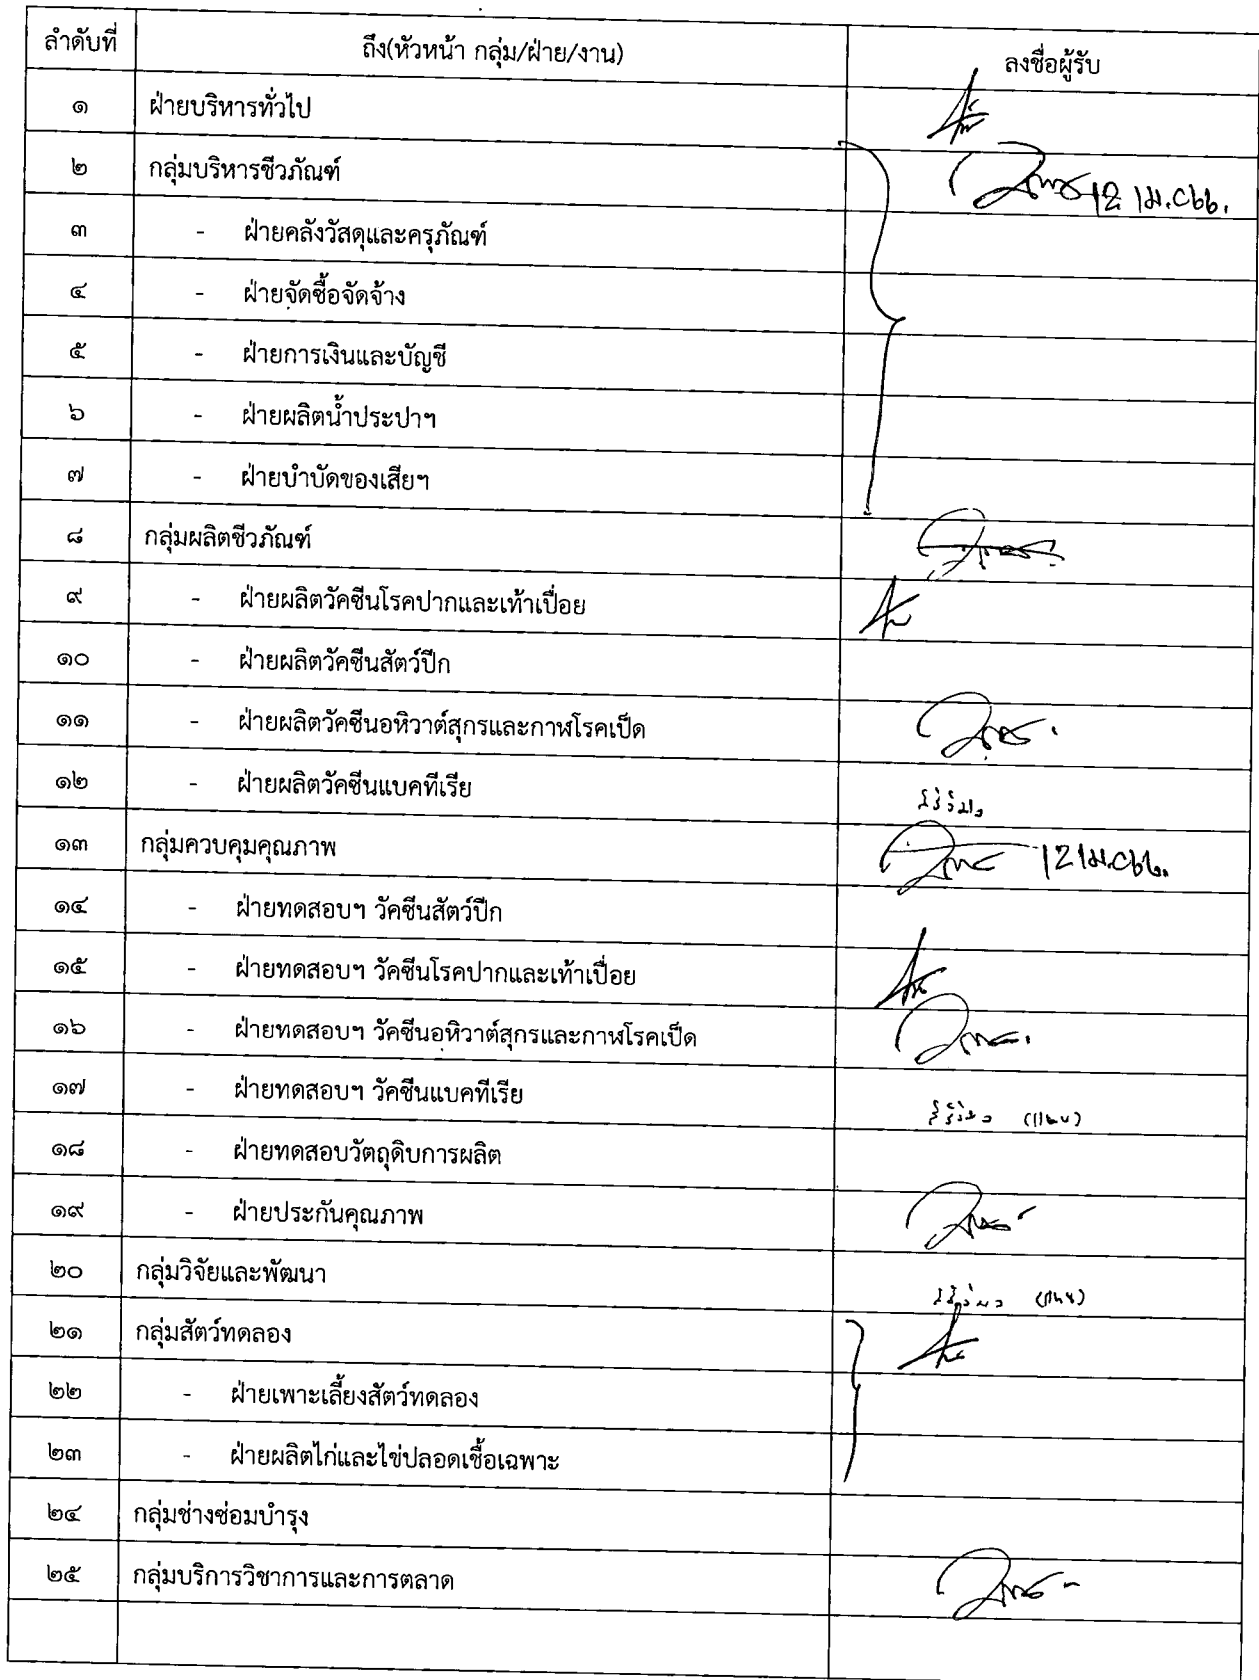 ลำดับที่ ถึง(หัวหน้า กลุ่ม/ฝ่าย/งาน) ลงชื่อผู้รับ
๑ ฝ่ายบริหารทั่วไป
๒ กลุ่มบริหารชีวภัณฑ์
๓ - ฝ่ายคลังวัสดุและครุภัณฑ์
๔ - ฝ่ายจัดซื้อจัดจ้าง
๕ - ฝ่ายการเงินและบัญชี
๖ - ฝ่ายผลิตน้ำประปาฯ
๗ - ฝ่ายบำบัดของเสียฯ
๘ กลุ่มผลิตชีวภัณฑ์
๙ - ฝ่ายผลิตวัคซีนโรคปากและเท้าเปื่อย
๑๐ - ฝ่ายผลิตวัคซีนสัตว์ปีก
๑๑ - ฝ่ายผลิตวัคซีนอหิวาต์สุกรและกาฬโรคเป็ด
๑๒ - ฝ่ายผลิตวัคซีนแบคทีเรีย
๑๓ กลุ่มควบคุมคุณภาพ
๑๔ - ฝ่ายทดสอบฯ วัคซีนสัตว์ปีก
๑๕ - ฝ่ายทดสอบฯ วัคซีนโรคปากและเท้าเปื่อย
๑๖ - ฝ่ายทดสอบฯ วัคซีนอหิวาต์สุกรและกาฬโรคเป็ด
๑๗ - ฝ่ายทดสอบฯ วัคซีนแบคทีเรีย
๑๘ - ฝ่ายทดสอบวัตถุดิบการผลิต
๑๙ - ฝ่ายประกันคุณภาพ
๒๐ กลุ่มวิจัยและพัฒนา
๒๑ กลุ่มสัตว์ทดลอง
๒๒ - ฝ่ายเพาะเลี้ยงสัตว์ทดลอง
๒๓ - ฝ่ายผลิตไก่และไข่ปลอดเชื้อเฉพาะ
๒๔ กลุ่มช่างซ่อมบำรุง
๒๕ กลุ่มบริการวิชาการและการตลาด